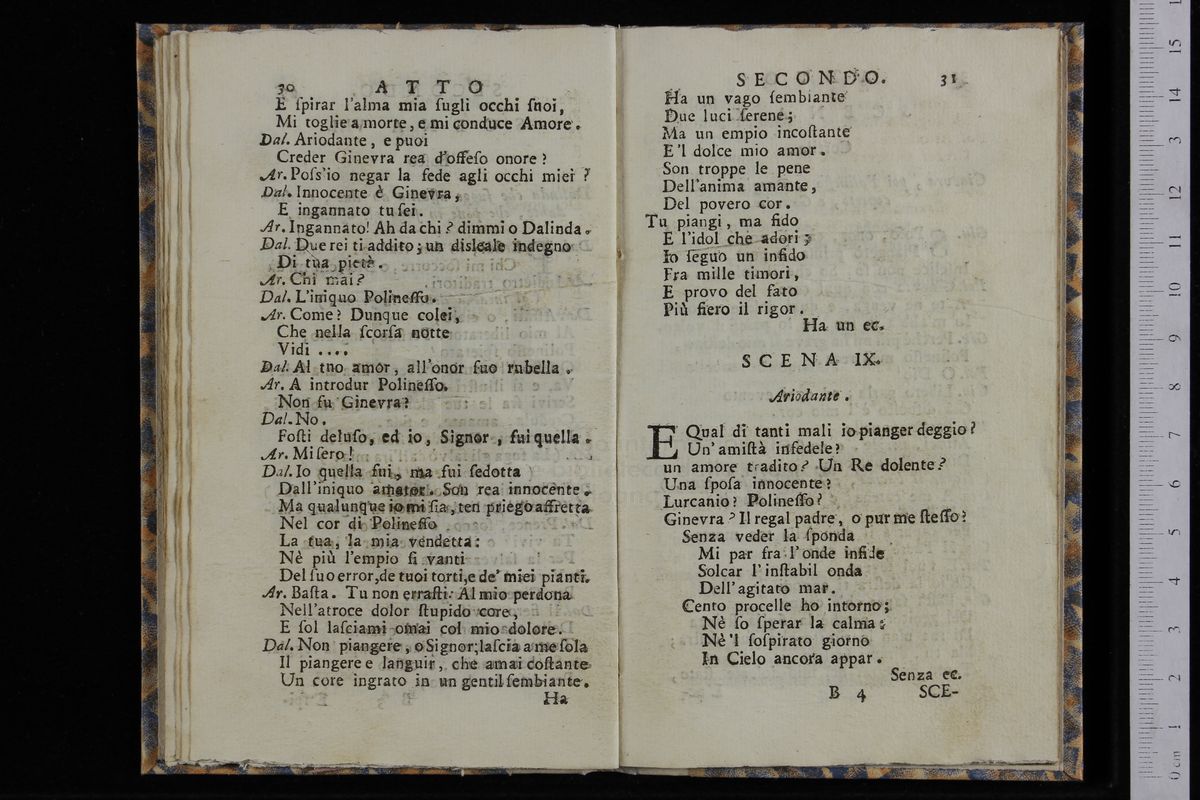 30 ATTO
E ſpirar l'alma mia ſugli occhi ſuoi,
Mi toglie a morte, e mi conduce Amore.
Dal. Ariodante, e puoi
Creder Ginevra rea d'offeſo onore?
Ar. Poſs'io negar la fede agli occhi miei?
Dal. Innocente è Ginevra,
E ingannato tu ſei.
Ar. Ingannato! Ah da chi? dimmi o Dalinda.
Dal. Due rei ti addito; un disleale indegno
Di tua pietè.
Ar. Chi mai?
Dal. L'iniquo Polineſſo.
Ar. Come? Dunque colei,
Che nella ſcorſa notte
Vidi ....
Dal. Al tuo amor, all'onor ſuo rubella.
Ar. A introdur Polineſſo.
Non fu Ginevra?
Dal. No.
Foſti deluſo, ed io, Signor, fui quella.
Ar. Miſero!
Dal. Io quella fui, ma fui ſedotta
Dall'iniquo amator. Son rea innocente.
Ma qualunque io mi ſia, ten priego affretta
Nel cor di Polineſſo
La tua, la mia vendetta:
Nè più l'empio ſi vanti
Del ſuo error, de tuoi torti, e de' miei pianti.
Ar. Baſta. Tu non erraſti: Al mio perdona
Nell'atroce dolor ſtupido core,
E ſol laſciami omai col mio dolore.
Dal. Non piangere, o Signor; laſcia a me ſola
Il piangere e languir, che amai coſtante
Un core ingrato in un gentil ſembiante.
Ha
SECONDO. 31
Ha un vago ſembiante
Due luci ſerene;
Ma un empio incoſtante
E'l dolce mio amor.
Son troppe le pene
Dell'anima amante,
Del povero cor.
Tu piangi, ma fido
E l'idol che adori;
Io ſeguo un infido
Fra mille timori,
E provo del fato
Più fiero il rigor.
Ha un ec.
SCENA IX.
Ariodante.
E Qual di tanti mali io pianger deggio?
Un' amiſtà infedele?
un amore tradito? Un Re dolente?
Una ſpoſa innocente?
Lurcanio? Polineſſo?
Ginevra? Il regal padre, o pur me ſteſſo?
Senza veder la ſponda
Mi par fra l'onde infide
Solcar l'inſtabil onda
Dell'agitato mar.
Cento procelle ho intorno;
Nè ſo ſperar la calma;
Nè'l ſoſpirato giorno
In Cielo ancora appar.
Senza ec.
B 4 SCE-
15
14
3
12
11
10
9
8
7
6
5
4
3
2
1
0 cm